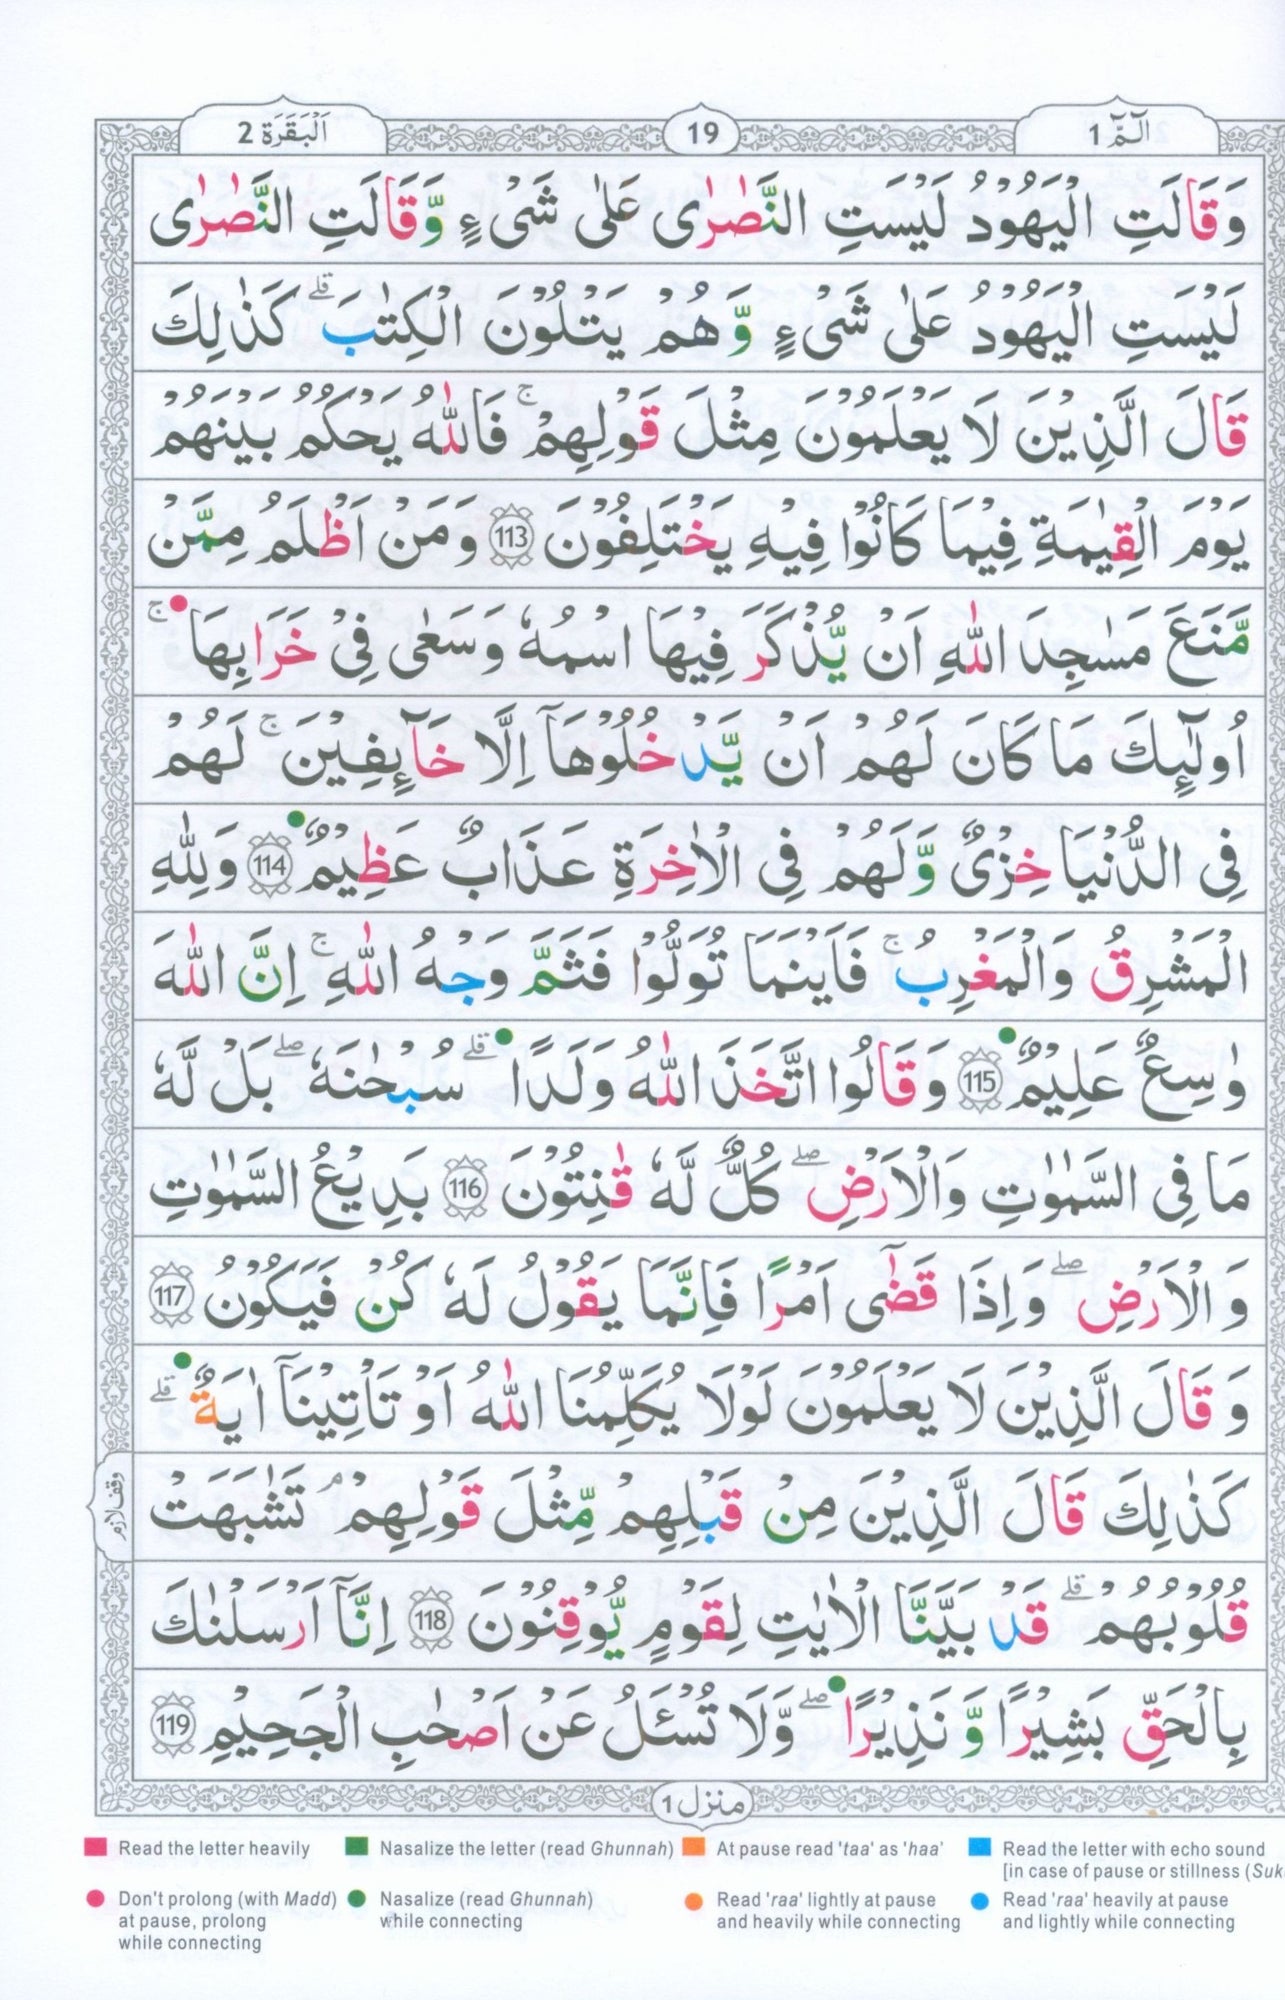 الٓمّٓ 1
19
اَلْبَقَرَة 2
وَقَالَتِ الْيَهُوْدُ لَيْسَتِ النَّصٰرٰى عَلٰى شَىْءٍ وَّقَالَتِ النَّصٰرٰى
لَيْسَتِ الْيَهُوْدُ عَلٰى شَىْءٍ وَّهُمْ يَتْلُوْنَ الْكِتٰبَ ۗ كَذٰلِكَ
قَالَ الَّذِيْنَ لَا يَعْلَمُوْنَ مِثْلَ قَوْلِهِمْ ۚ فَاللّٰهُ يَحْكُمُ بَيْنَهُمْ
يَوْمَ الْقِيٰمَةِ فِيْمَا كَانُوْا فِيْهِ يَخْتَلِفُوْنَ 113 وَمَنْ اَظْلَمُ مِمَّنْ
مَّنَعَ مَسٰجِدَ اللّٰهِ اَنْ يُّذْكَرَ فِيْهَا اسْمُهٗ وَسَعٰى فِىْ خَرَابِهَا ۚ
اُولٰٓئِكَ مَا كَانَ لَهُمْ اَنْ يَّدْخُلُوْهَآ اِلَّا خَآئِفِيْنَ ۚ لَهُمْ
فِى الدُّنْيَا خِزْىٌ وَّلَهُمْ فِى الْاٰخِرَةِ عَذَابٌ عَظِيْمٌ 114 وَلِلّٰهِ
الْمَشْرِقُ وَالْمَغْرِبُ ۚ فَاَيْنَمَا تُوَلُّوْا فَثَمَّ وَجْهُ اللّٰهِ ۚ اِنَّ اللّٰهَ
وٰسِعٌ عَلِيْمٌ 115 وَقَالُوا اتَّخَذَ اللّٰهُ وَلَدًا ۗ سُبْحٰنَهٗ ۖ بَلْ لَّهٗ
مَا فِى السَّمٰوٰتِ وَالْاَرْضِ ۖ كُلٌّ لَّهٗ قٰنِتُوْنَ 116 بَدِيْعُ السَّمٰوٰتِ
وَالْاَرْضِ ۖ وَاِذَا قَضٰٓى اَمْرًا فَاِنَّمَا يَقُوْلُ لَهٗ كُنْ فَيَكُوْنُ 117
وَقَالَ الَّذِيْنَ لَا يَعْلَمُوْنَ لَوْلَا يُكَلِّمُنَا اللّٰهُ اَوْ تَاْتِيْنَآ اٰيَةٌ ۗ
كَذٰلِكَ قَالَ الَّذِيْنَ مِنْ قَبْلِهِمْ مِّثْلَ قَوْلِهِمْ ۘ تَشٰبَهَتْ
وقف لازم
قُلُوْبُهُمْ ۗ قَدْ بَيَّنَّا الْاٰيٰتِ لِقَوْمٍ يُّوْقِنُوْنَ 118 اِنَّآ اَرْسَلْنٰكَ
بِالْحَقِّ بَشِيْرًا وَّنَذِيْرًا ۖ وَّلَا تُسْـَٔلُ عَنْ اَصْحٰبِ الْجَحِيْمِ 119
منزل 1
Read the letter heavily
Nasalize the letter (read Ghunnah)
At pause read 'taa' as 'haa'
Read the letter with echo sound
[in case of pause or stillness (Suk
Don't prolong (with Madd)
at pause, prolong
while connecting
Nasalize (read Ghunnah)
while connecting
Read 'raa' lightly at pause
and heavily while connecting
Read 'raa' heavily at pause
and lightly while connecting